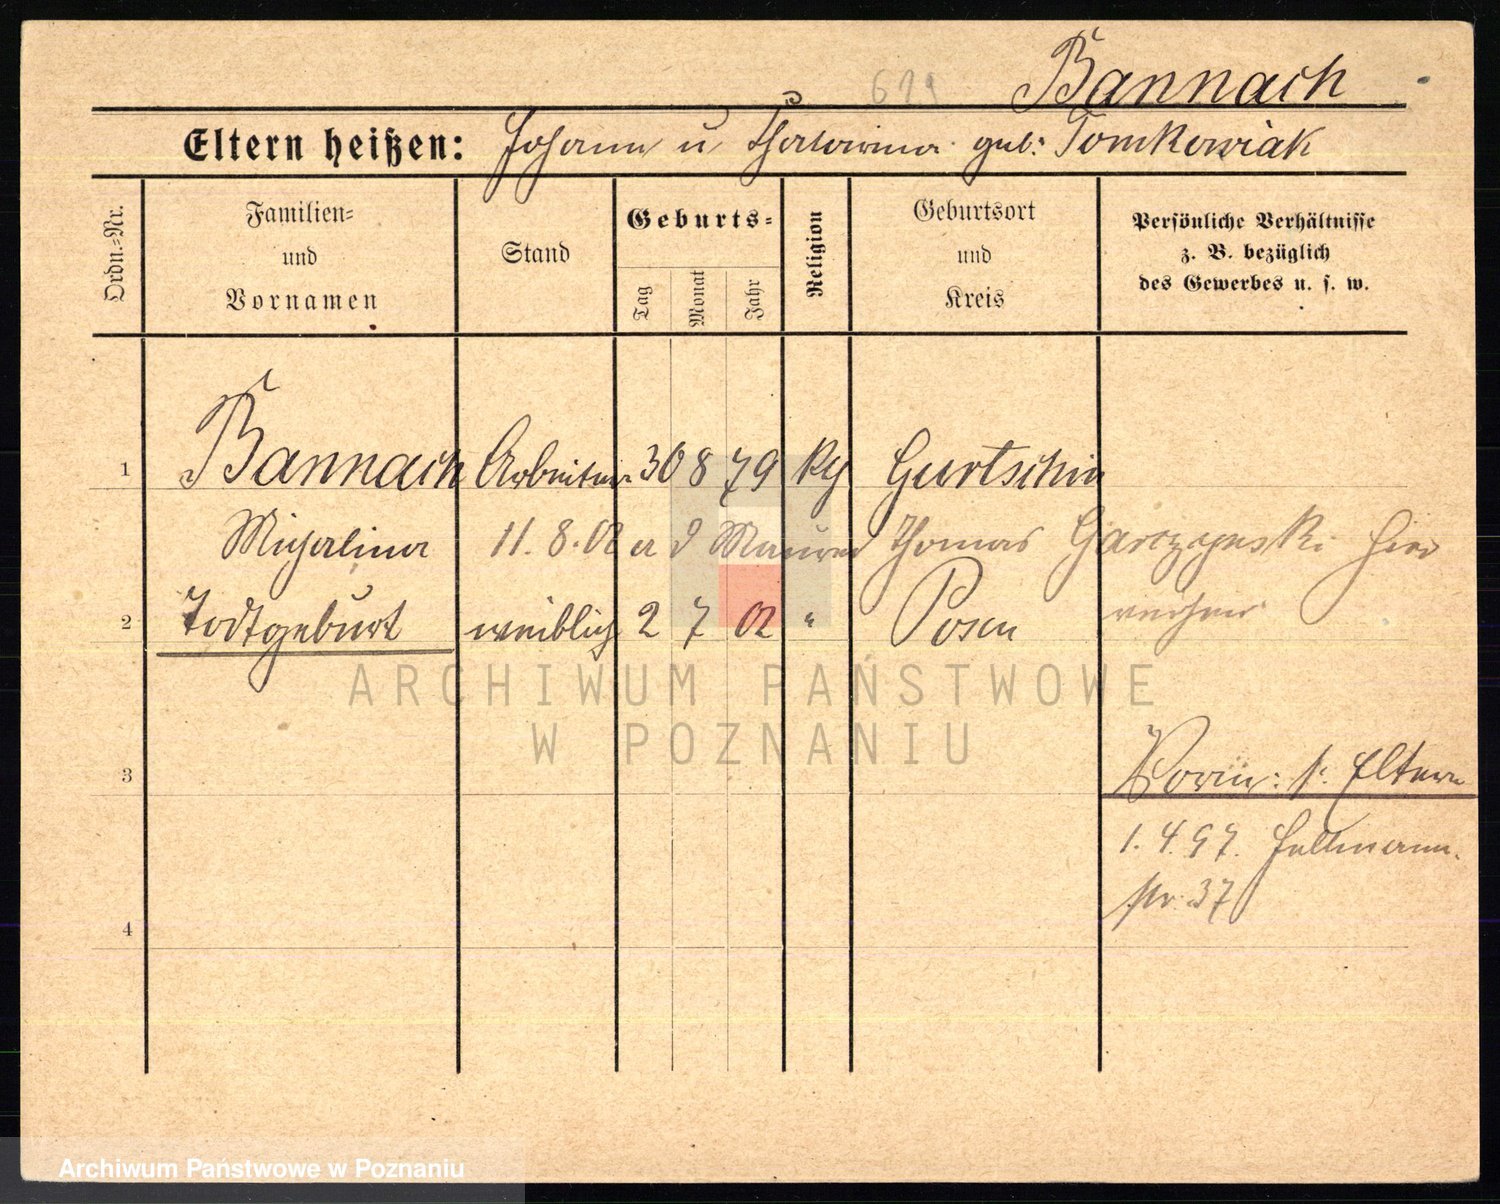 621
Bannach
Eltern heißen: Johann u Katarina geb. Tomkowiak
Ordn.=Nr.
Familien=
und
Vornamen
Stand
Geburts=
Tag
Monat
Jahr
Religion
Geburtsort
und
Kreis
Persönliche Verhältnisse
z. B. bezüglich
des Gewerbes u. s. w.
1 Bannach Arbeiterin 30 8 79 kg Gurtschin
Michalina 11. 8. 02 a d Maurer Thomas hier
2 Todtgeburt weiblich 2 7 02 " Posen
3
Vorm: s. Eltern
1. 4. 97.
str. 37
4
ARCHIWUM PAŃSTWOWE
W POZNANIU
Archiwum Państwowe w Poznaniu